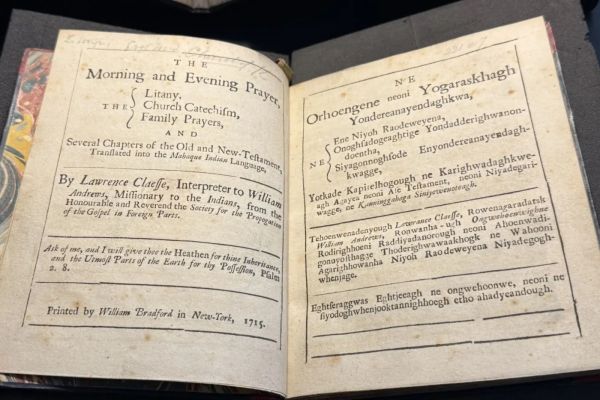 THE
Morning and Evening Prayer,
THE { Litany,
Church Catechism,
Family Prayers,
AND
Several Chapters of the Old and New-Testament,
Translated into the Mahaque Indian Language,
By Lawrence Claesse, Interpreter to William
Andrews, Missionary to the Indians, from the
Honourable and Reverend the Society for the Propogation
of the Gospel in Foreign Parts.
Ask of me, and I will give thee the Heathen for thine Inheritance,
and the Utmost Parts of the Earth for thy Possession, Psalm
2. 8.
Printed by William Bradford in New-York, 1715.
NE
Orhoengene neoni Yogaraskhagh
Yondereanayendaghkwa,
NE { Ene Niyoh Raodeweyena,
Onoghsadogeaghtige Yondadderighwanon-
doentha,
Siyagonnoghsode Enyondereanayendagh-
kwagge,
Yotkade Kapitelhogough ne Karighwadaghkwe-
agh Agayea neoni Ase Testament, neoni Niyadegari-
wagge, ne Kanninggahaga Siniyewenoteagh.
Tehoenwenadenyough Lawrance Claesse, Rowenagaradatsk
William Andrews, Ronwanha-ugh Ongwehoenwighne
Rodirighhoeni Raddiyadanorough neoni Ahoenwadi-
gonuyosthagge Thoderighwawaakhogk ne Wahooni
Agarighhowanha Niyoh Raodeweyena Niyadegogh-
whenjage.
Eghtseraggwas Eghtjeeagh ne ongwehoonwe, neoni ne
siyodoghwhenjooktannighhoegh etho ahadyeandough.